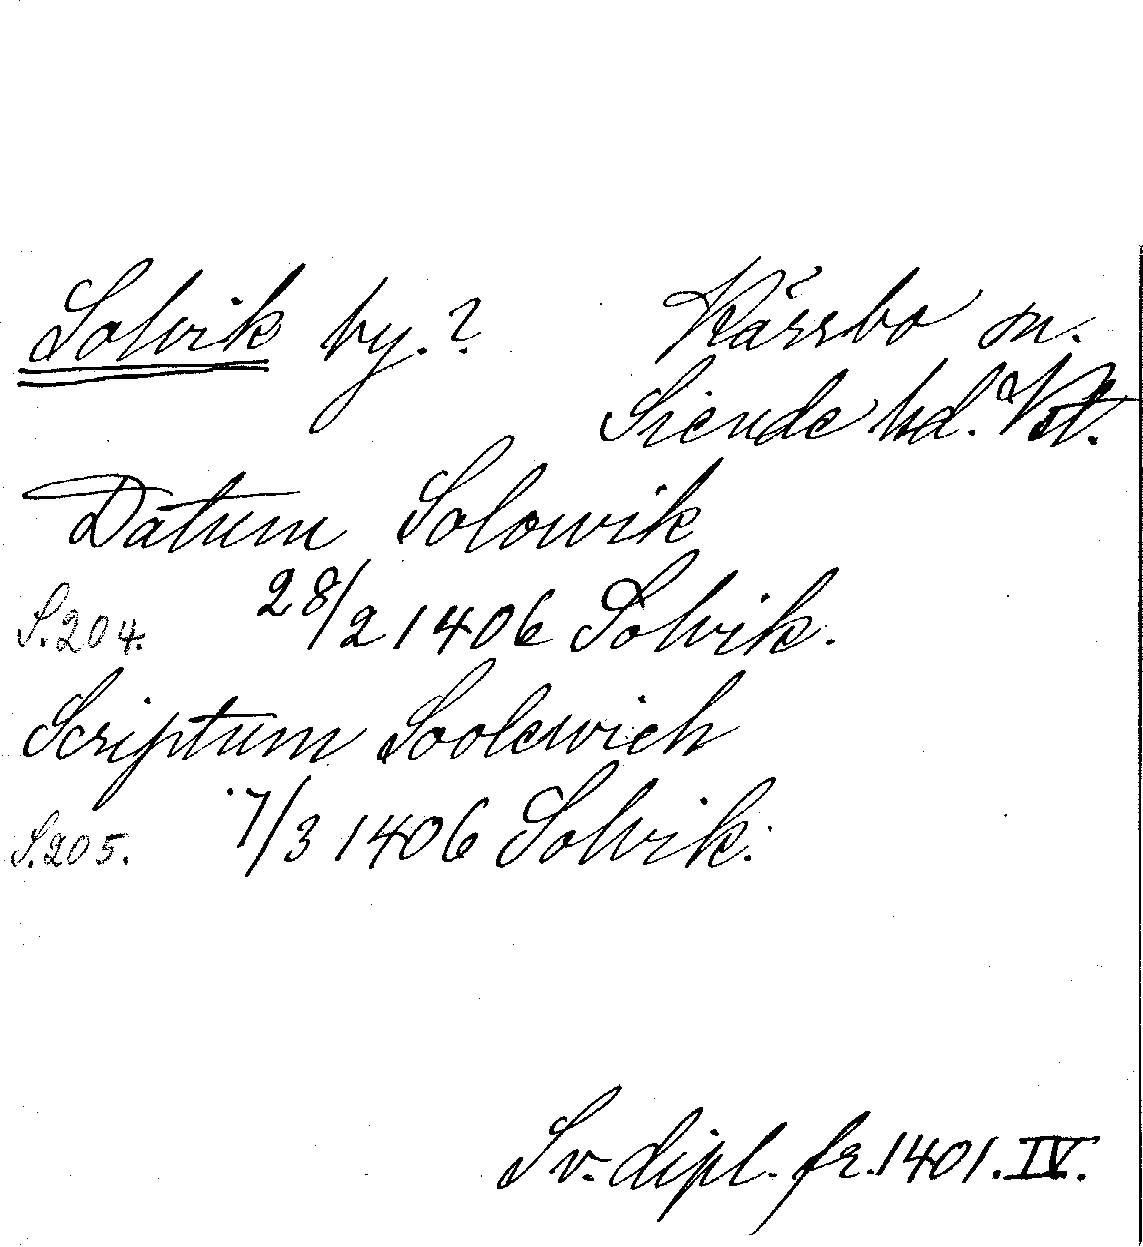 Solvik by.? Kärrbo sn.
Siende hd. Vst.
Datum Solowik
S.204. 28/2 1406 Solvik.
Scriptum Soolewich
S.205. 7/3 1406 Solvik.
Sv. dipl. fr. 1401. IV.